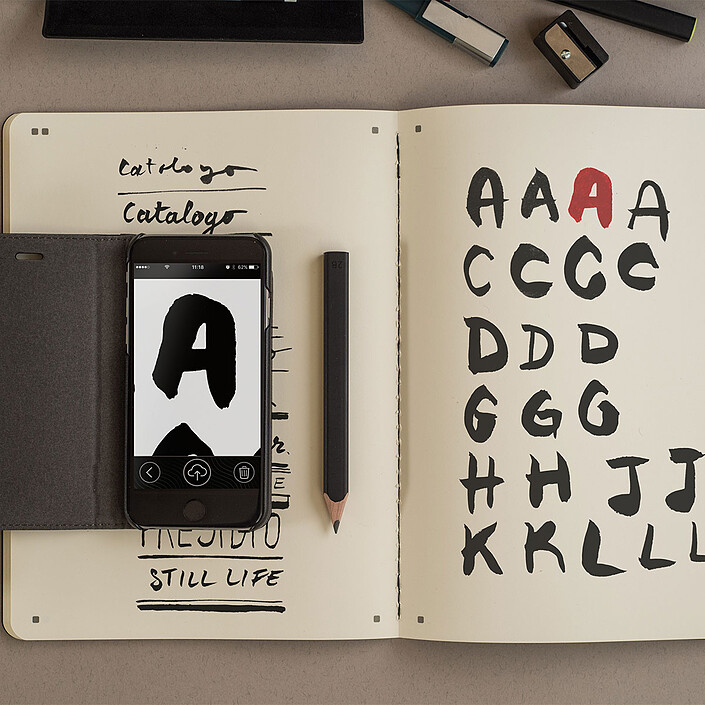 Catalogo
Catalogo
11:18 62%
A
PRESIDIO
STILL LIFE
26
A A A A
C C C C
D D D
G G G
H H J J
K K L L L